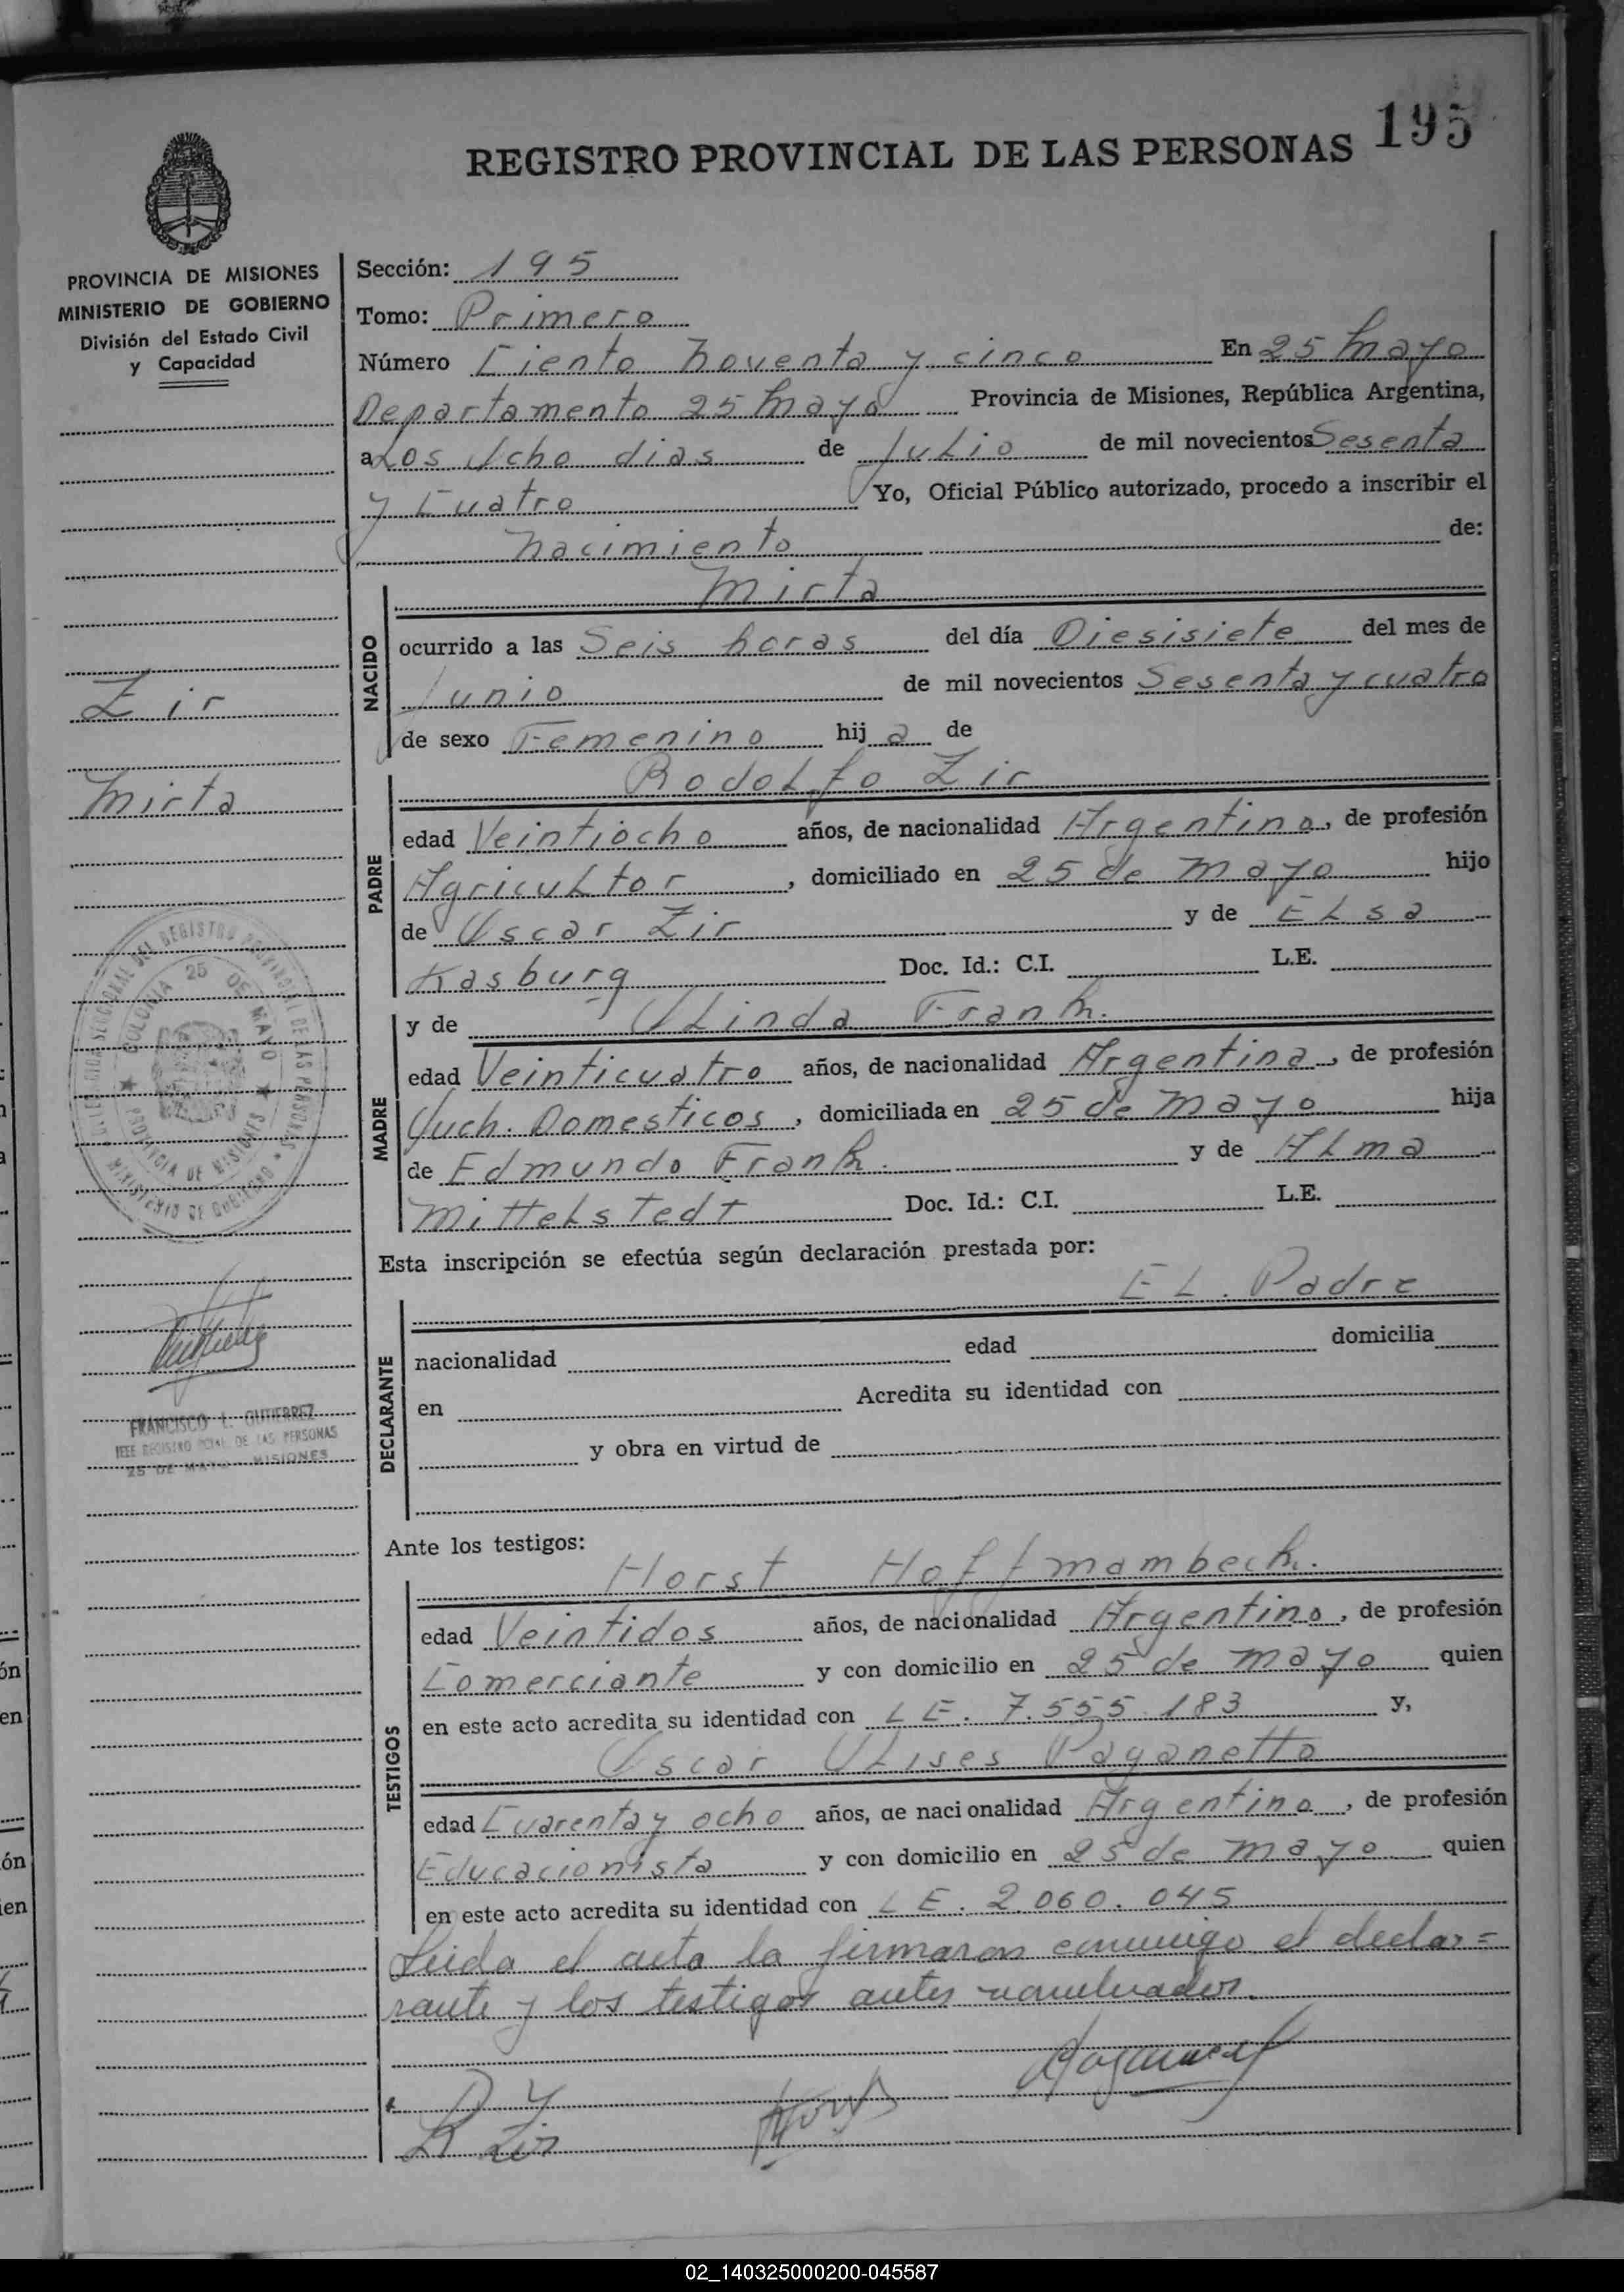 195
REGISTRO PROVINCIAL DE LAS PERSONAS
PROVINCIA DE MISIONES
MINISTERIO DE GOBIERNO
División del Estado Civil
y Capacidad
Zir
Mirta
COLONIA 25 DE MAYO
PROVINCIA DE MISIONES
MINISTERIO DE GOBIERNO
FRANCISCO L. GUTIERREZ
JEFE REGISTRO PCIAL. DE LAS PERSONAS
25 DE MAYO MISIONES
Sección: 195
Tomo: Primero
Número Ciento Noventa y cinco En 25 Mayo
Departamento 25 Mayo Provincia de Misiones, República Argentina,
a Los Ocho dias de Julio de mil novecientos Sesenta
y Cuatro Yo, Oficial Público autorizado, procedo a inscribir el
Nacimiento de:
NACIDO
Mirta
ocurrido a las Seis horas del día Diesisiete del mes de
Junio de mil novecientos Sesenta y cuatro
de sexo Femenino hija de
PADRE
Rodolfo Zir
edad Veintiocho años, de nacionalidad Argentina, de profesión
Agricultor, domiciliado en 25 de Mayo hijo
de Oscar Zir y de Elsa
Kasburg Doc. Id.: C.I. L.E.
MADRE
y de Olinda Frank.
edad Veinticuatro años, de nacionalidad Argentina, de profesión
Quch. Domesticos, domiciliada en 25 de Mayo hija
de Edmundo Frank. y de Alma
Mittelstedt Doc. Id.: C.I. L.E.
Esta inscripción se efectúa según declaración prestada por:
DECLARANTE
El. Padre
nacionalidad edad domicilia
en Acredita su identidad con
y obra en virtud de
Ante los testigos:
TESTIGOS
Horst Hoffmambech.
edad Veintidos años, de nacionalidad Argentino, de profesión
Comerciante y con domicilio en 25 de Mayo quien
en este acto acredita su identidad con L E. 7.555.183 y,
Oscar Ulises Paganetto
edad Cuarenta y ocho años, de nacionalidad Argentino, de profesión
Educacionista y con domicilio en 25 de Mayo quien
en este acto acredita su identidad con L E. 2.060.045
Leida el acta la firmaron conmigo el decla=
rante y los testigos antes nombrados.
R Zir
02_140325000200-045587